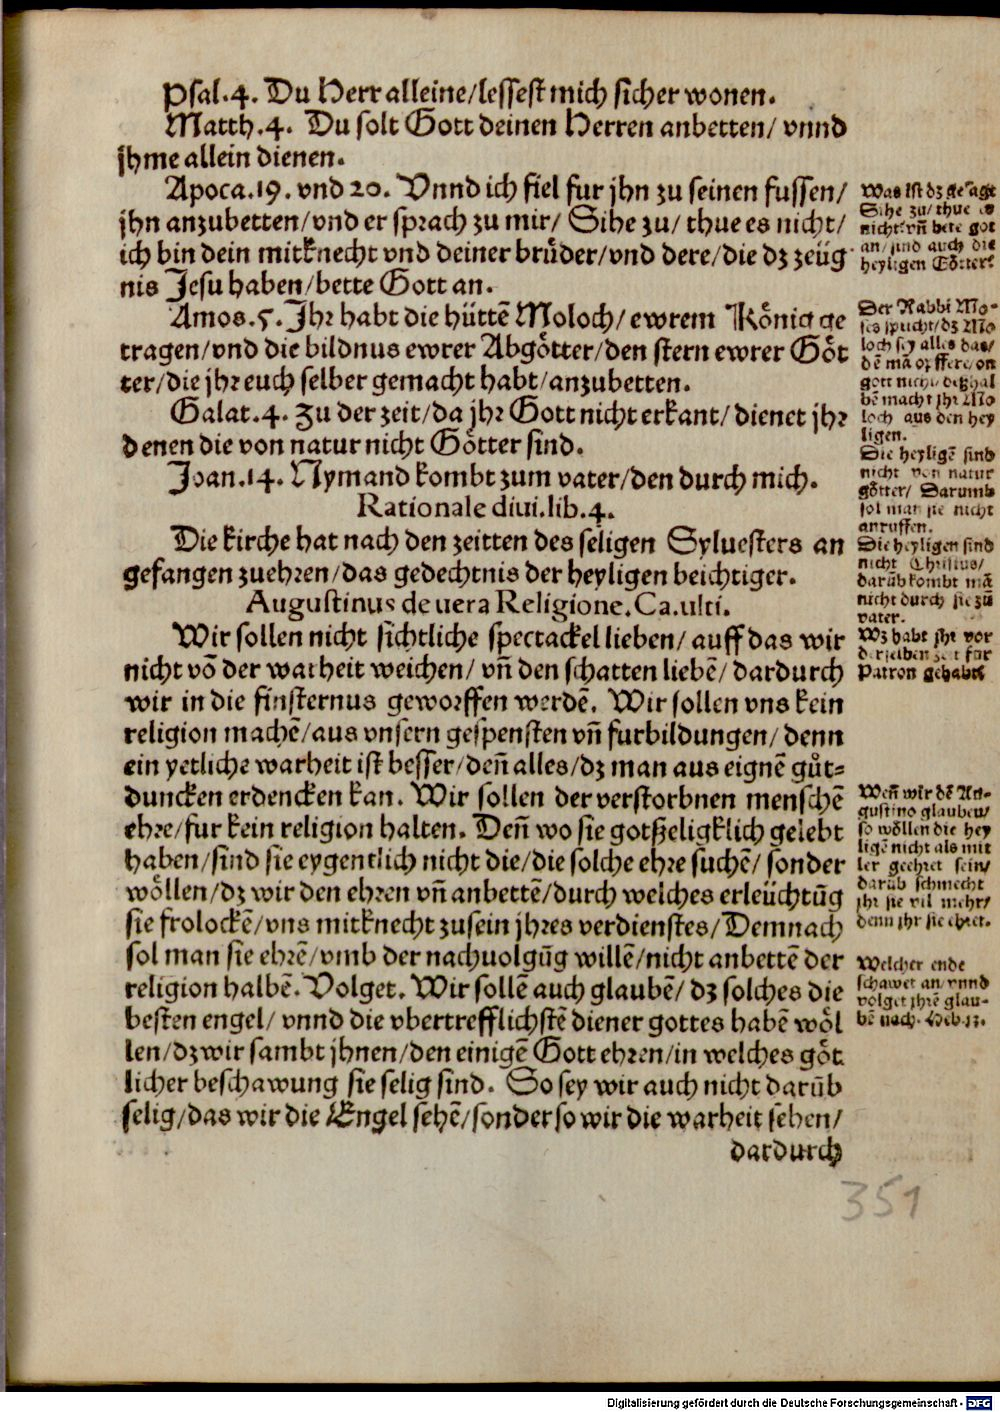 Psal.4. Du Herr alleine/lessest mich sicher wonen.
Matth.4. Du solt Gott deinen Herren anbetten/ vnnd
jhme allein dienen.
Apoca.19. vnd 20. Vnnd ich fiel fur jhn zu seinen fussen/
jhn anzubetten/vnd er sprach zu mir/ Sihe zu/ thue es nicht/
ich bin dein mitknecht vnd deiner brůder/vnd dere/die dz zeüg
nis Jesu haben/bette Gott an.
Amos.5. Jhr habt die hüttē Moloch/ ewrem König ge
tragen/vnd die bildnus ewrer Abgötter/den stern ewrer Göt
ter/die jhr euch selber gemacht habt/anzubetten.
Galat.4. Zu der zeit/da jhr Gott nicht erkant/dienet jhr
denen die von natur nicht Götter sind.
Joan.14. Nymand kombt zum vater/den durch mich.
Rationale diui.lib.4.
Die kirche hat nach den zeitten des seligen Syluesters an
gefangen zuehren/das gedechtnis der heyligen beichtiger.
Augustinus de uera Religione.Ca.ulti.
Wir sollen nicht sichtliche spectackel lieben/ auff das wir
nicht vō der warheit weichen/ vn̄ den schatten liebē/ dardurch
wir in die finsternus geworffen werdē. Wir sollen vns kein
religion machē/aus vnsern gespensten vn̄ furbildungen/ denn
ein yetliche warheit ist besser/den̄ alles/dz man aus eignē gůt=
duncken erdencken kan. Wir sollen der verstorbnen menschē
ehre/fur kein religion halten. Den̄ wo sie gotßeligklich gelebt
haben/sind sie eygentlich nicht die/die solche ehre suchē/ sonder
wöllen/dz wir den ehren vn̄ anbettē/durch welches erleüchtūg
sie frolockē/vns mitknecht zusein jhres verdienstes/Demnach
sol man sie ehrē/vmb der nachuolgūg willē/nicht anbettē der
religion halbē. Volget. Wir sollē auch glaubē/ dz solches die
besten engel/ vnnd die vbertrefflichstē diener gottes habē wöl
len/dz wir sambt jhnen/den einigē Gott ehren/in welches göt
licher beschawung sie selig sind. So sey wir auch nicht darūb
selig/das wir die Engel sehē/sonder so wir die warheit sehen/
dardurch
Was ist dz gesagt
Sihe zu/ thue es
nicht/vn̄ bete got
an/sind auch die
heyligen Götter?
Der Rabbi Mo-
ses spricht/dz Mo
loch sey alles das/
dē mā opffere/on
gott nicht/deßhal
bē macht jhr Mo
loch aus den hey
ligen.
Die heyligē sind
nicht von natur
götter/ Darumb
sol man sie nicht
anruffen.
Die heyligen sind
nicht Christus/
darūb kombt mā
nicht durch sie zū
vater.
Wz habt jhr vor
derselben zeit fur
Patron gehabt?
Wen̄ wir dē Au-
gustino glauben/
so wöllen die hey
ligē nicht als mit
ler geehret sein/
darūb schmecht
jhr sie vil mehr/
denn jhr sie ehret.
Welcher ende
schawet an/vnnd
volget jhrē glau-
bē nach. Heb.13.
351
Digitalisierung gefördert durch die Deutsche Forschungsgemeinschaft - DFG